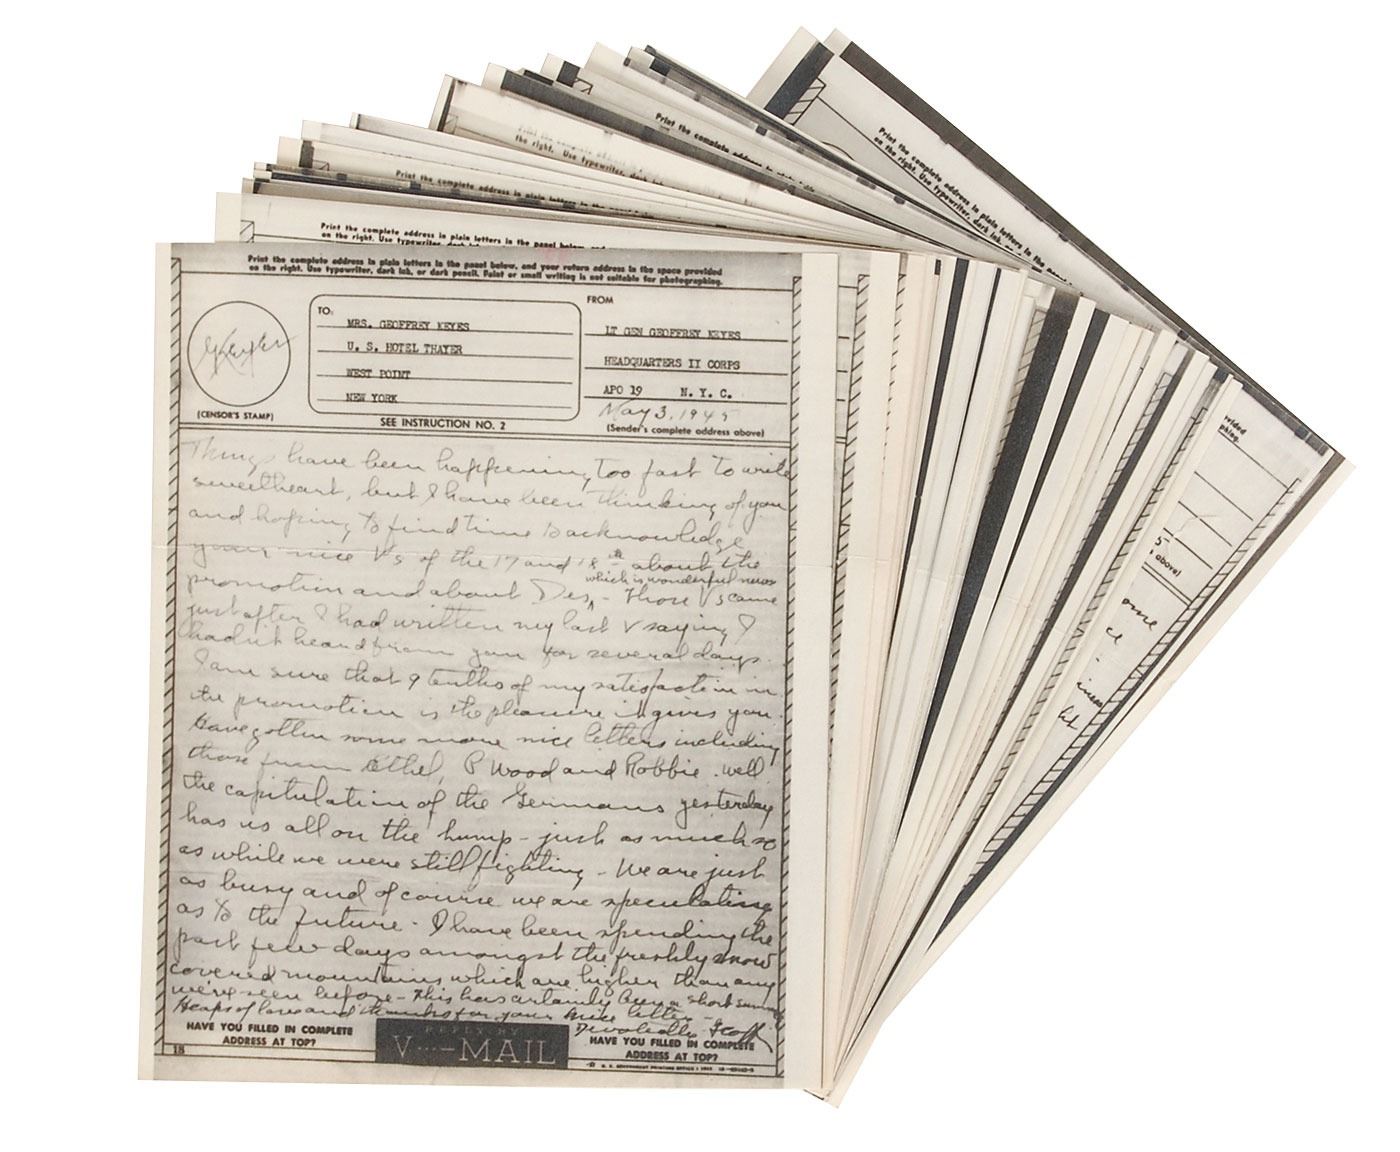 Print the complete address in plain letters in the
on the right. Use typewriter, dark ink,
Print the complete address
on the right. Use typewriter
the right. Use
Print the complete address in plain letters in the
Print the complete address in plain letters in the panel below, and
on the right. Use typewriter, dark ink
Print the complete address in plain letters in the panel below, and your return address in the space provided
on the right. Use typewriter, dark ink, or dark pencil. Faint or small writing is not suitable for photographing.
(CENSOR'S STAMP)
TO:
MRS. GEOFFREY KEYES
U. S. HOTEL THAYER
WEST POINT
NEW YORK
SEE INSTRUCTION NO. 2
FROM
LT GEN GEOFFREY KEYES
HEADQUARTERS II CORPS
APO 19 N. Y. C.
May 3, 1945
(Sender's complete address above)
Things have been happening too fast to write
sweetheart, but I have been thinking of you
and hoping to find time to acknowledge
your nice V's of the 17 and 18th about the
which is wonderful news
promotion and about Des, - Those Vs came
just after I had written my last V saying I
hadnt heard from you for several days.
I am sure that 9 tenths of my satisfaction in
the promotion is the pleasure it gives you.
Have gotten some more nice letters including
those from Ethel, P Wood and Robbie. Well
the capitulation of the Germans yesterday
has us all on the hump - just as much so
as while we were still fighting - We are just
as busy and of course we are speculating
as to the future - I have been spending the
past few days amongst the freshly snow
covered mountains which are higher than any
we've seen before - This has certainly been a short
Heaps of love and thanks for your nice letter -
Devotedly Geoff
HAVE YOU FILLED IN COMPLETE
ADDRESS AT TOP?
REPLY BY
V···—MAIL
HAVE YOU FILLED IN COMPLETE
ADDRESS AT TOP?
18
U. S. GOVERNMENT PRINTING OFFICE
vided
phing.
above)